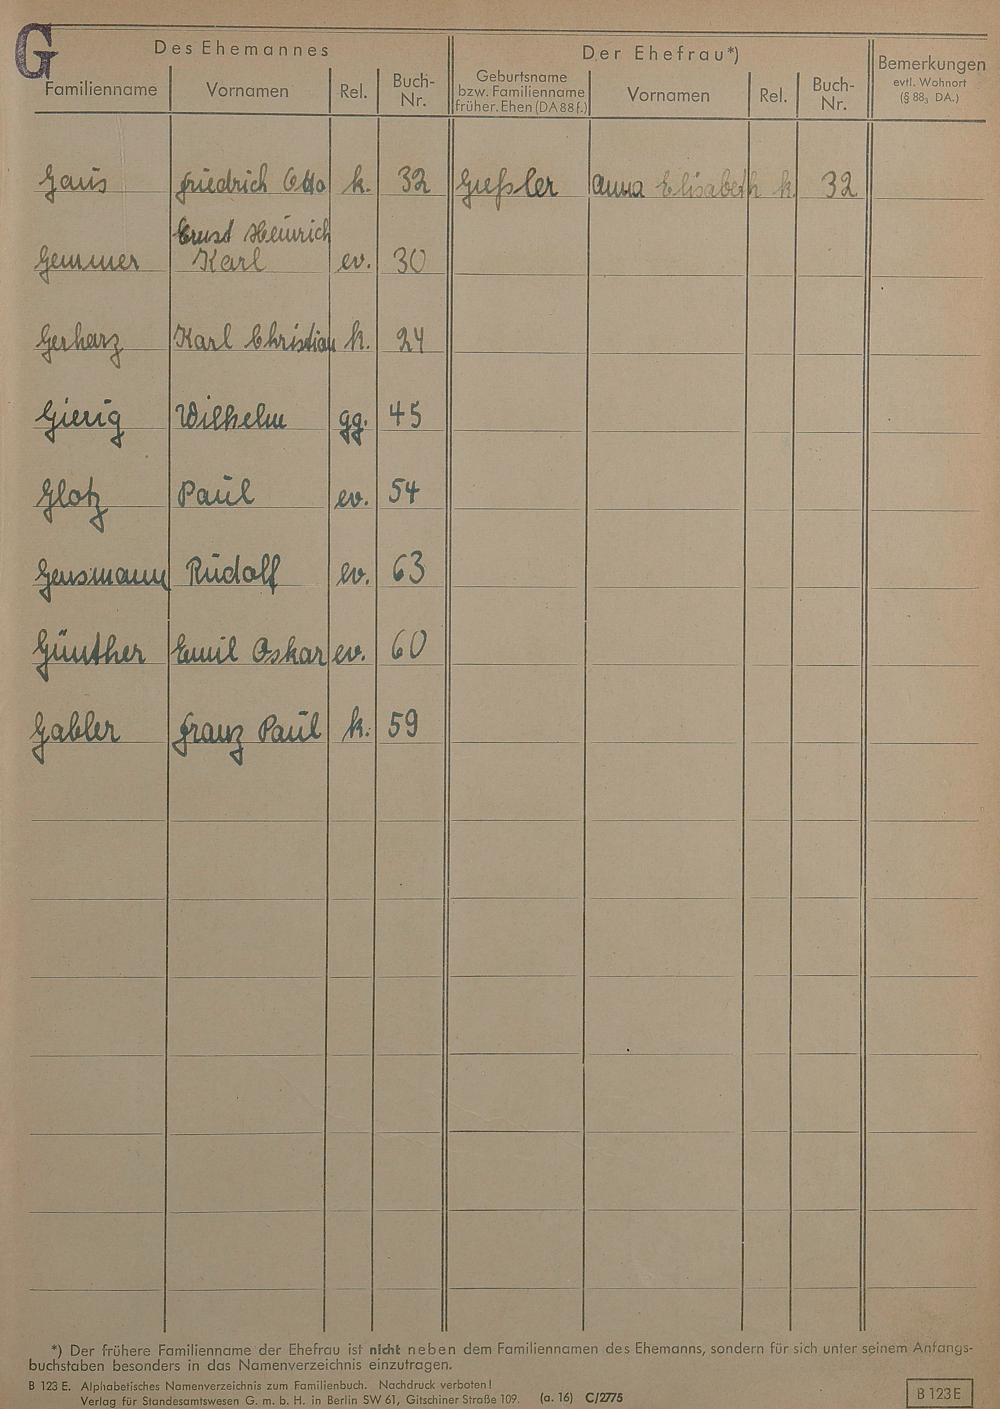 G
Des Ehemannes
Der Ehefrau*)
Bemerkungen
evtl. Wohnort
(§ 88, DA.)
Familienname Vornamen Rel. Buch-Nr. Geburtsname bzw. Familienname früher. Ehen (DA 88 f.) Vornamen Rel. Buch-Nr.
Gaus Friedrich Otto k. 32 Gießler Anna Elisabeth k. 32
Ernst Heinrich
Gemmer Karl ev. 30
Gerharz Karl Christian k. 24
Gierig Wilhelm gg. 45
Glotz Paul ev. 54
Gensmann Rudolf ev. 63
Günther Emil Oskar ev. 60
Gabler Franz Paul k. 59
*) Der frühere Familienname der Ehefrau ist nicht neben dem Familiennamen des Ehemanns, sondern für sich unter seinem Anfangs-
buchstaben besonders in das Namenverzeichnis einzutragen.
B 123 E. Alphabetisches Namenverzeichnis zum Familienbuch. Nachdruck verboten!
Verlag für Standesamtswesen G. m. b. H. in Berlin SW 61, Gitschiner Straße 109. (a. 16) C/2775
B 123 E